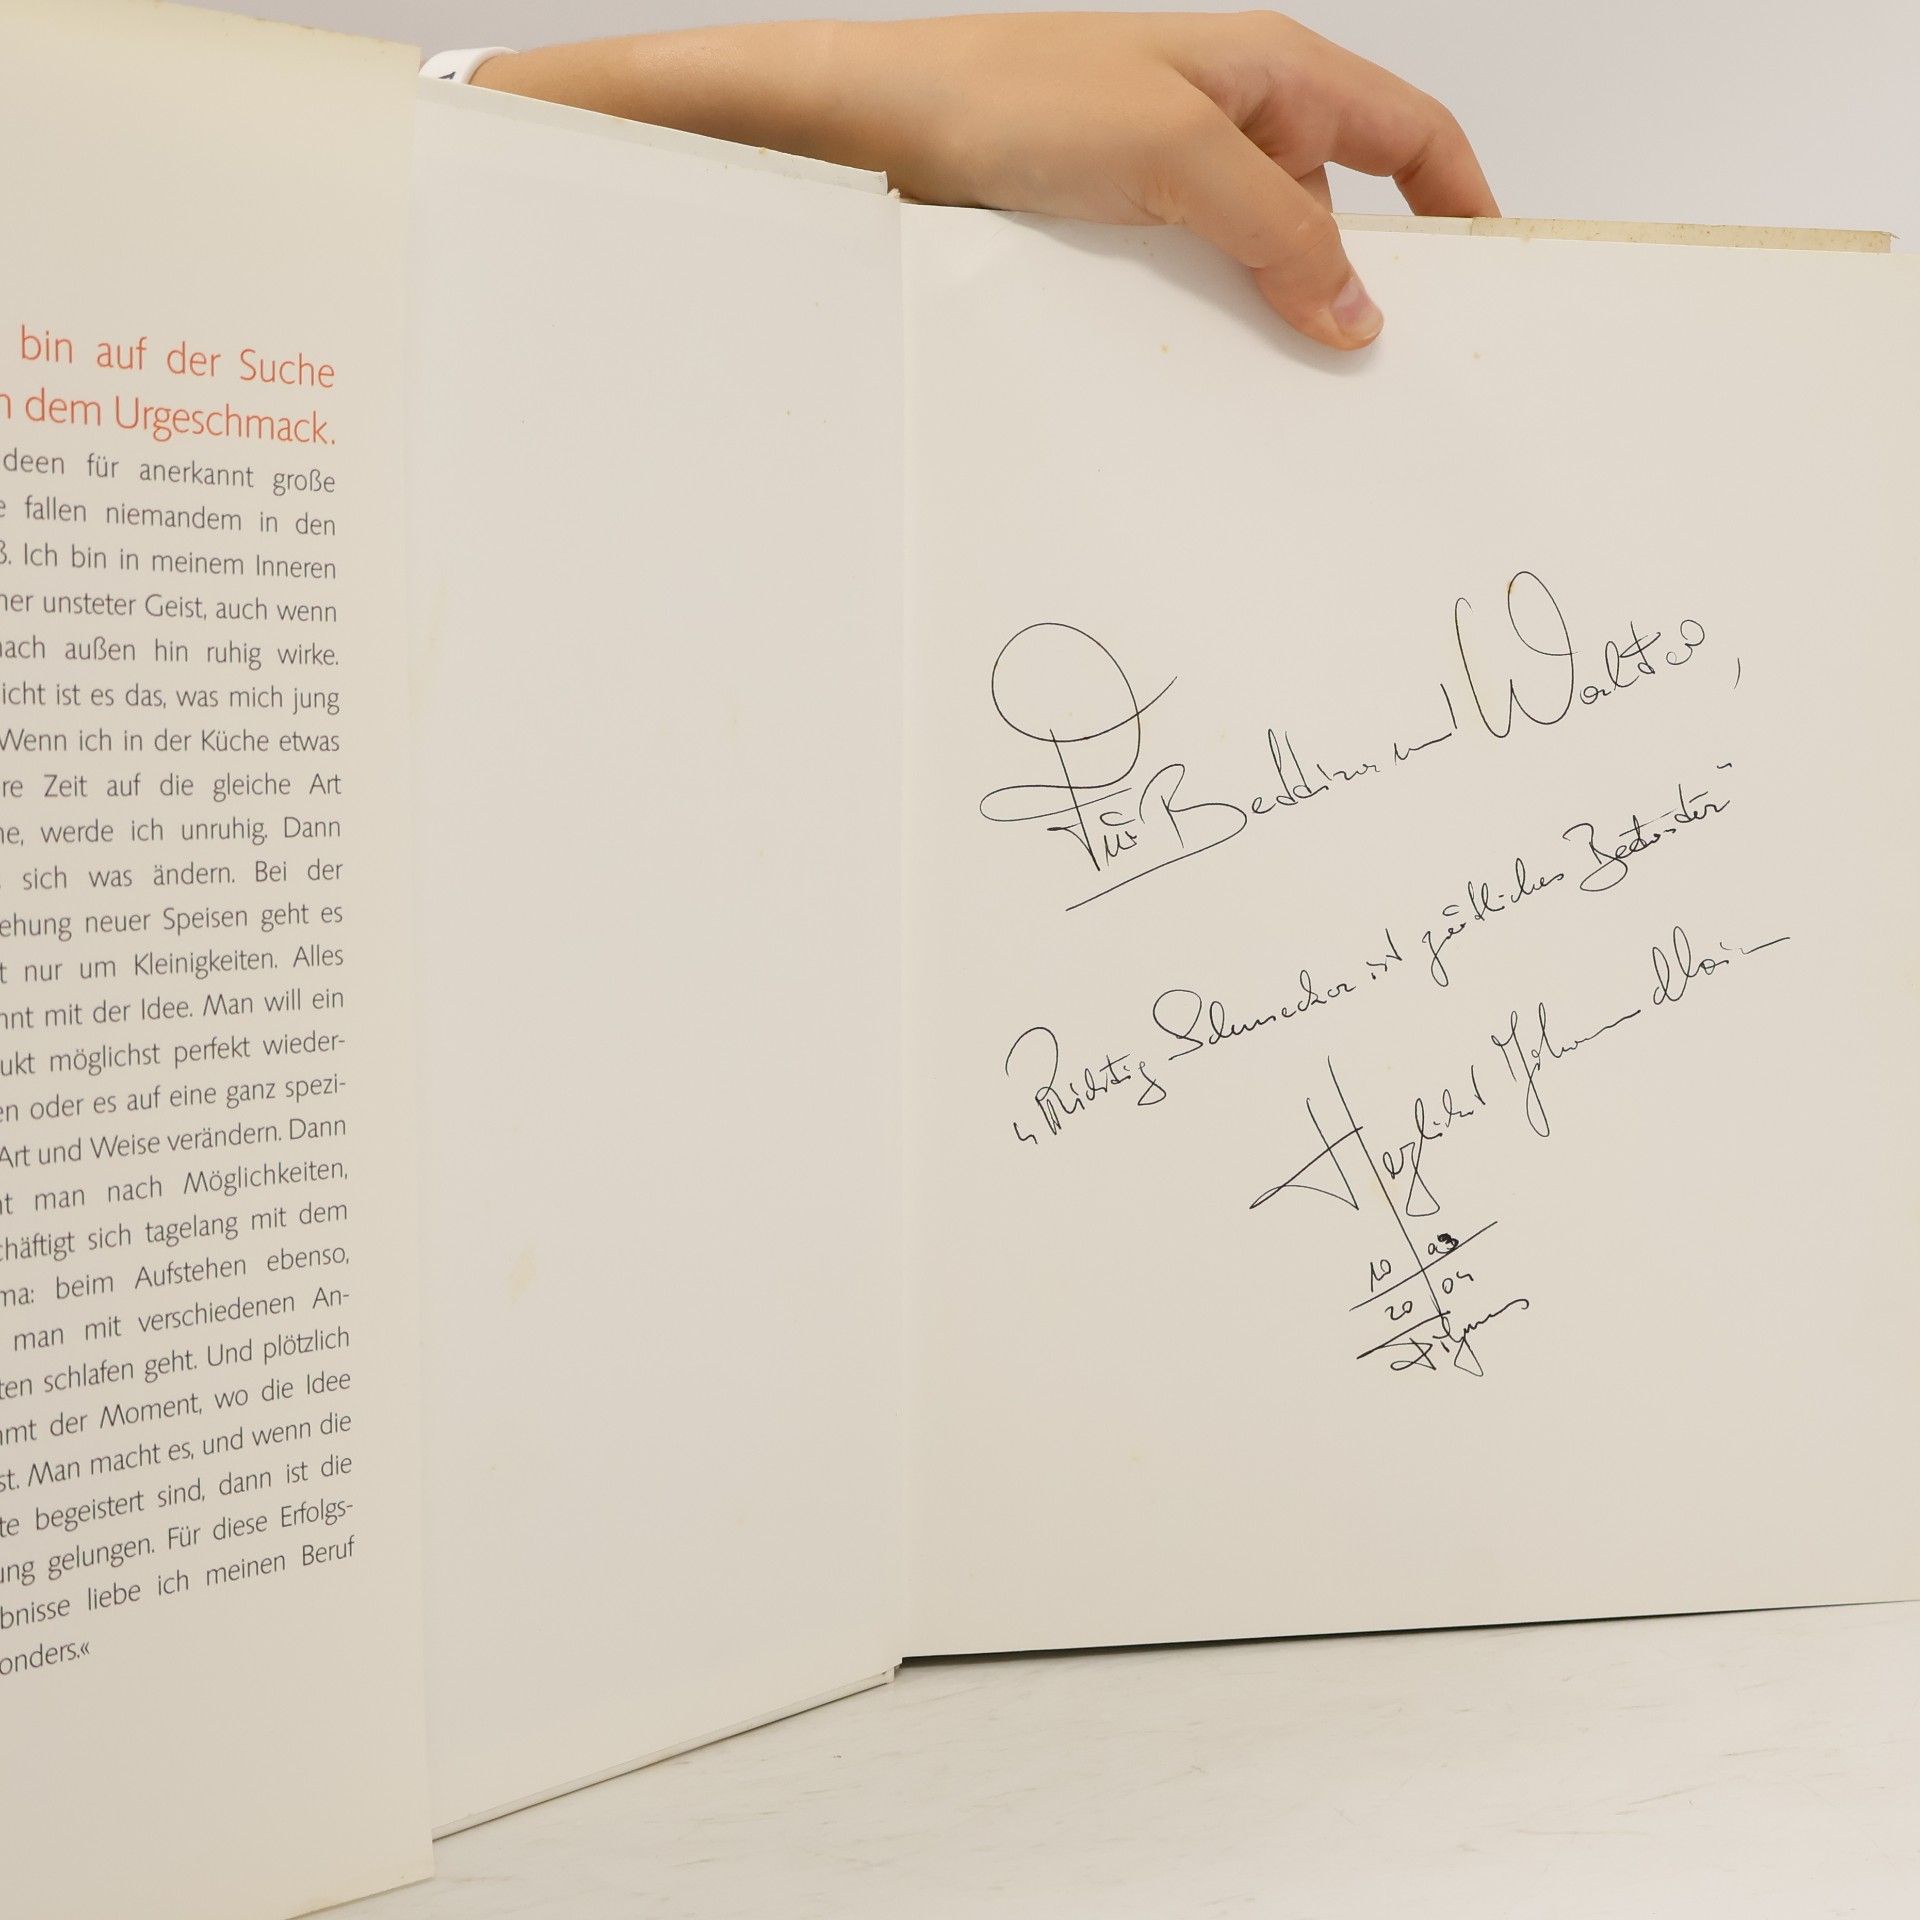 bin auf der Suche
dem Urgeschmack.
deen für anerkannt große
e fallen niemandem in den
ß. Ich bin in meinem Inneren
ner unsteter Geist, auch wenn
nach außen hin ruhig wirke.
icht ist es das, was mich jung
Wenn ich in der Küche etwas
re Zeit auf die gleiche Art
he, werde ich unruhig. Dann
sich was ändern. Bei der
ehung neuer Speisen geht es
t nur um Kleinigkeiten. Alles
nnt mit der Idee. Man will ein
ukt möglichst perfekt wieder-
en oder es auf eine ganz spezi-
Art und Weise verändern. Dann
ht man nach Möglichkeiten,
chäftigt sich tagelang mit dem
ma: beim Aufstehen ebenso,
man mit verschiedenen An-
ten schlafen geht. Und plötzlich
mmt der Moment, wo die Idee
st. Man macht es, und wenn die
te begeistert sind, dann ist die
ung gelungen. Für diese Erfolgs-
bnisse liebe ich meinen Beruf
onders.«
Für Bettina und Walter,
"Richtig Schmecken ist zärtliches
Herzlichst Johanna Maier
10 03
20 04